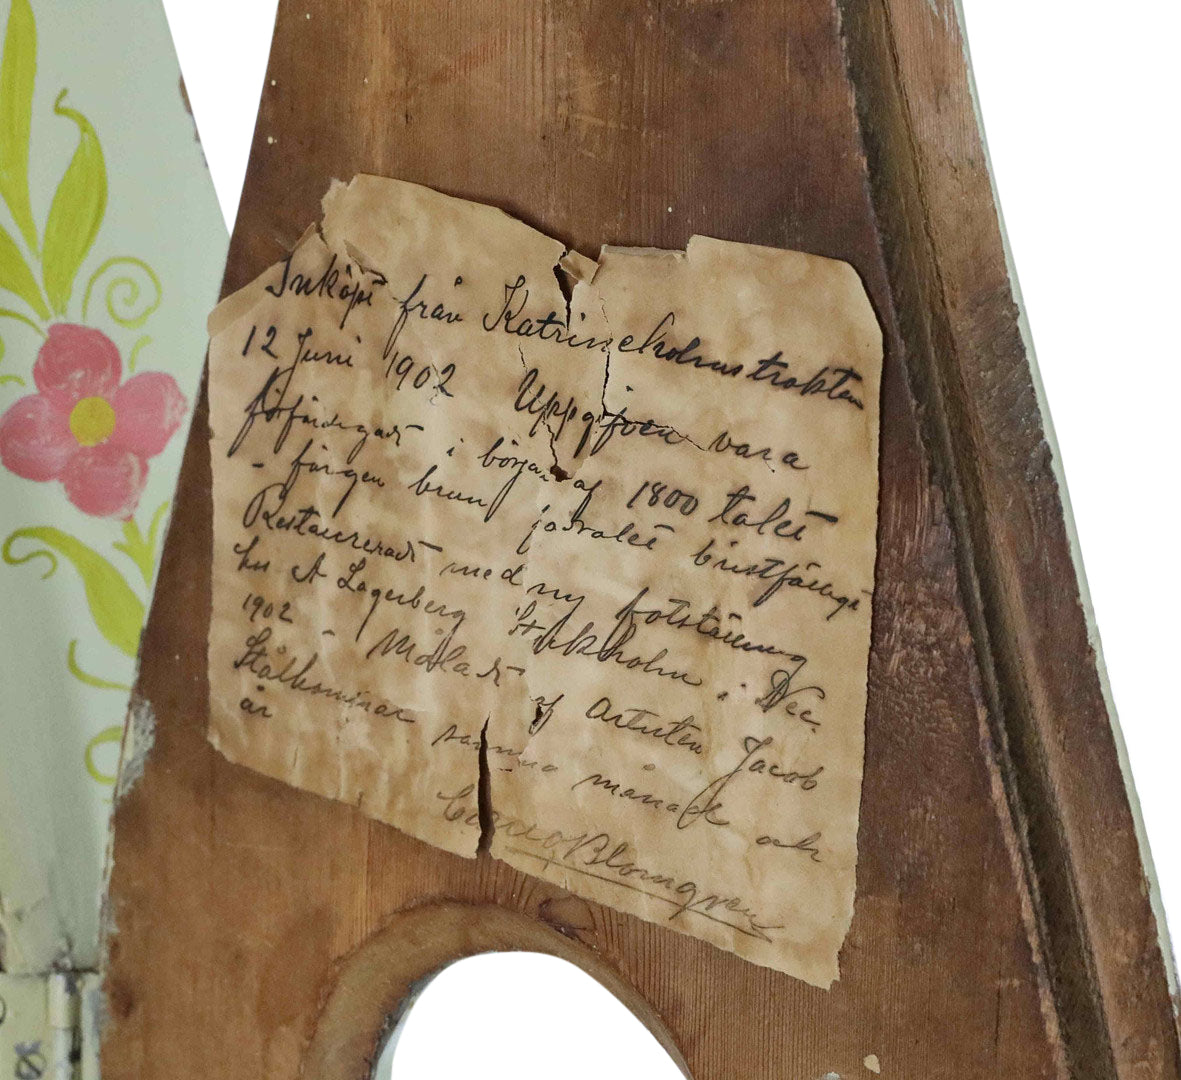 Inköpt från Katrineholmstrakten
12 Juni 1902 Uppgifven vara
förfärdigadt i början af 1800 talet
- färgen brun jadvalet bristfälligt
Restaureradt med ny fotställning
hos A Lagerberg Stockholm i Dec.
1902 - Måladt af Artisten Jacob
Stålhammar samma månad och
år
Blomgren